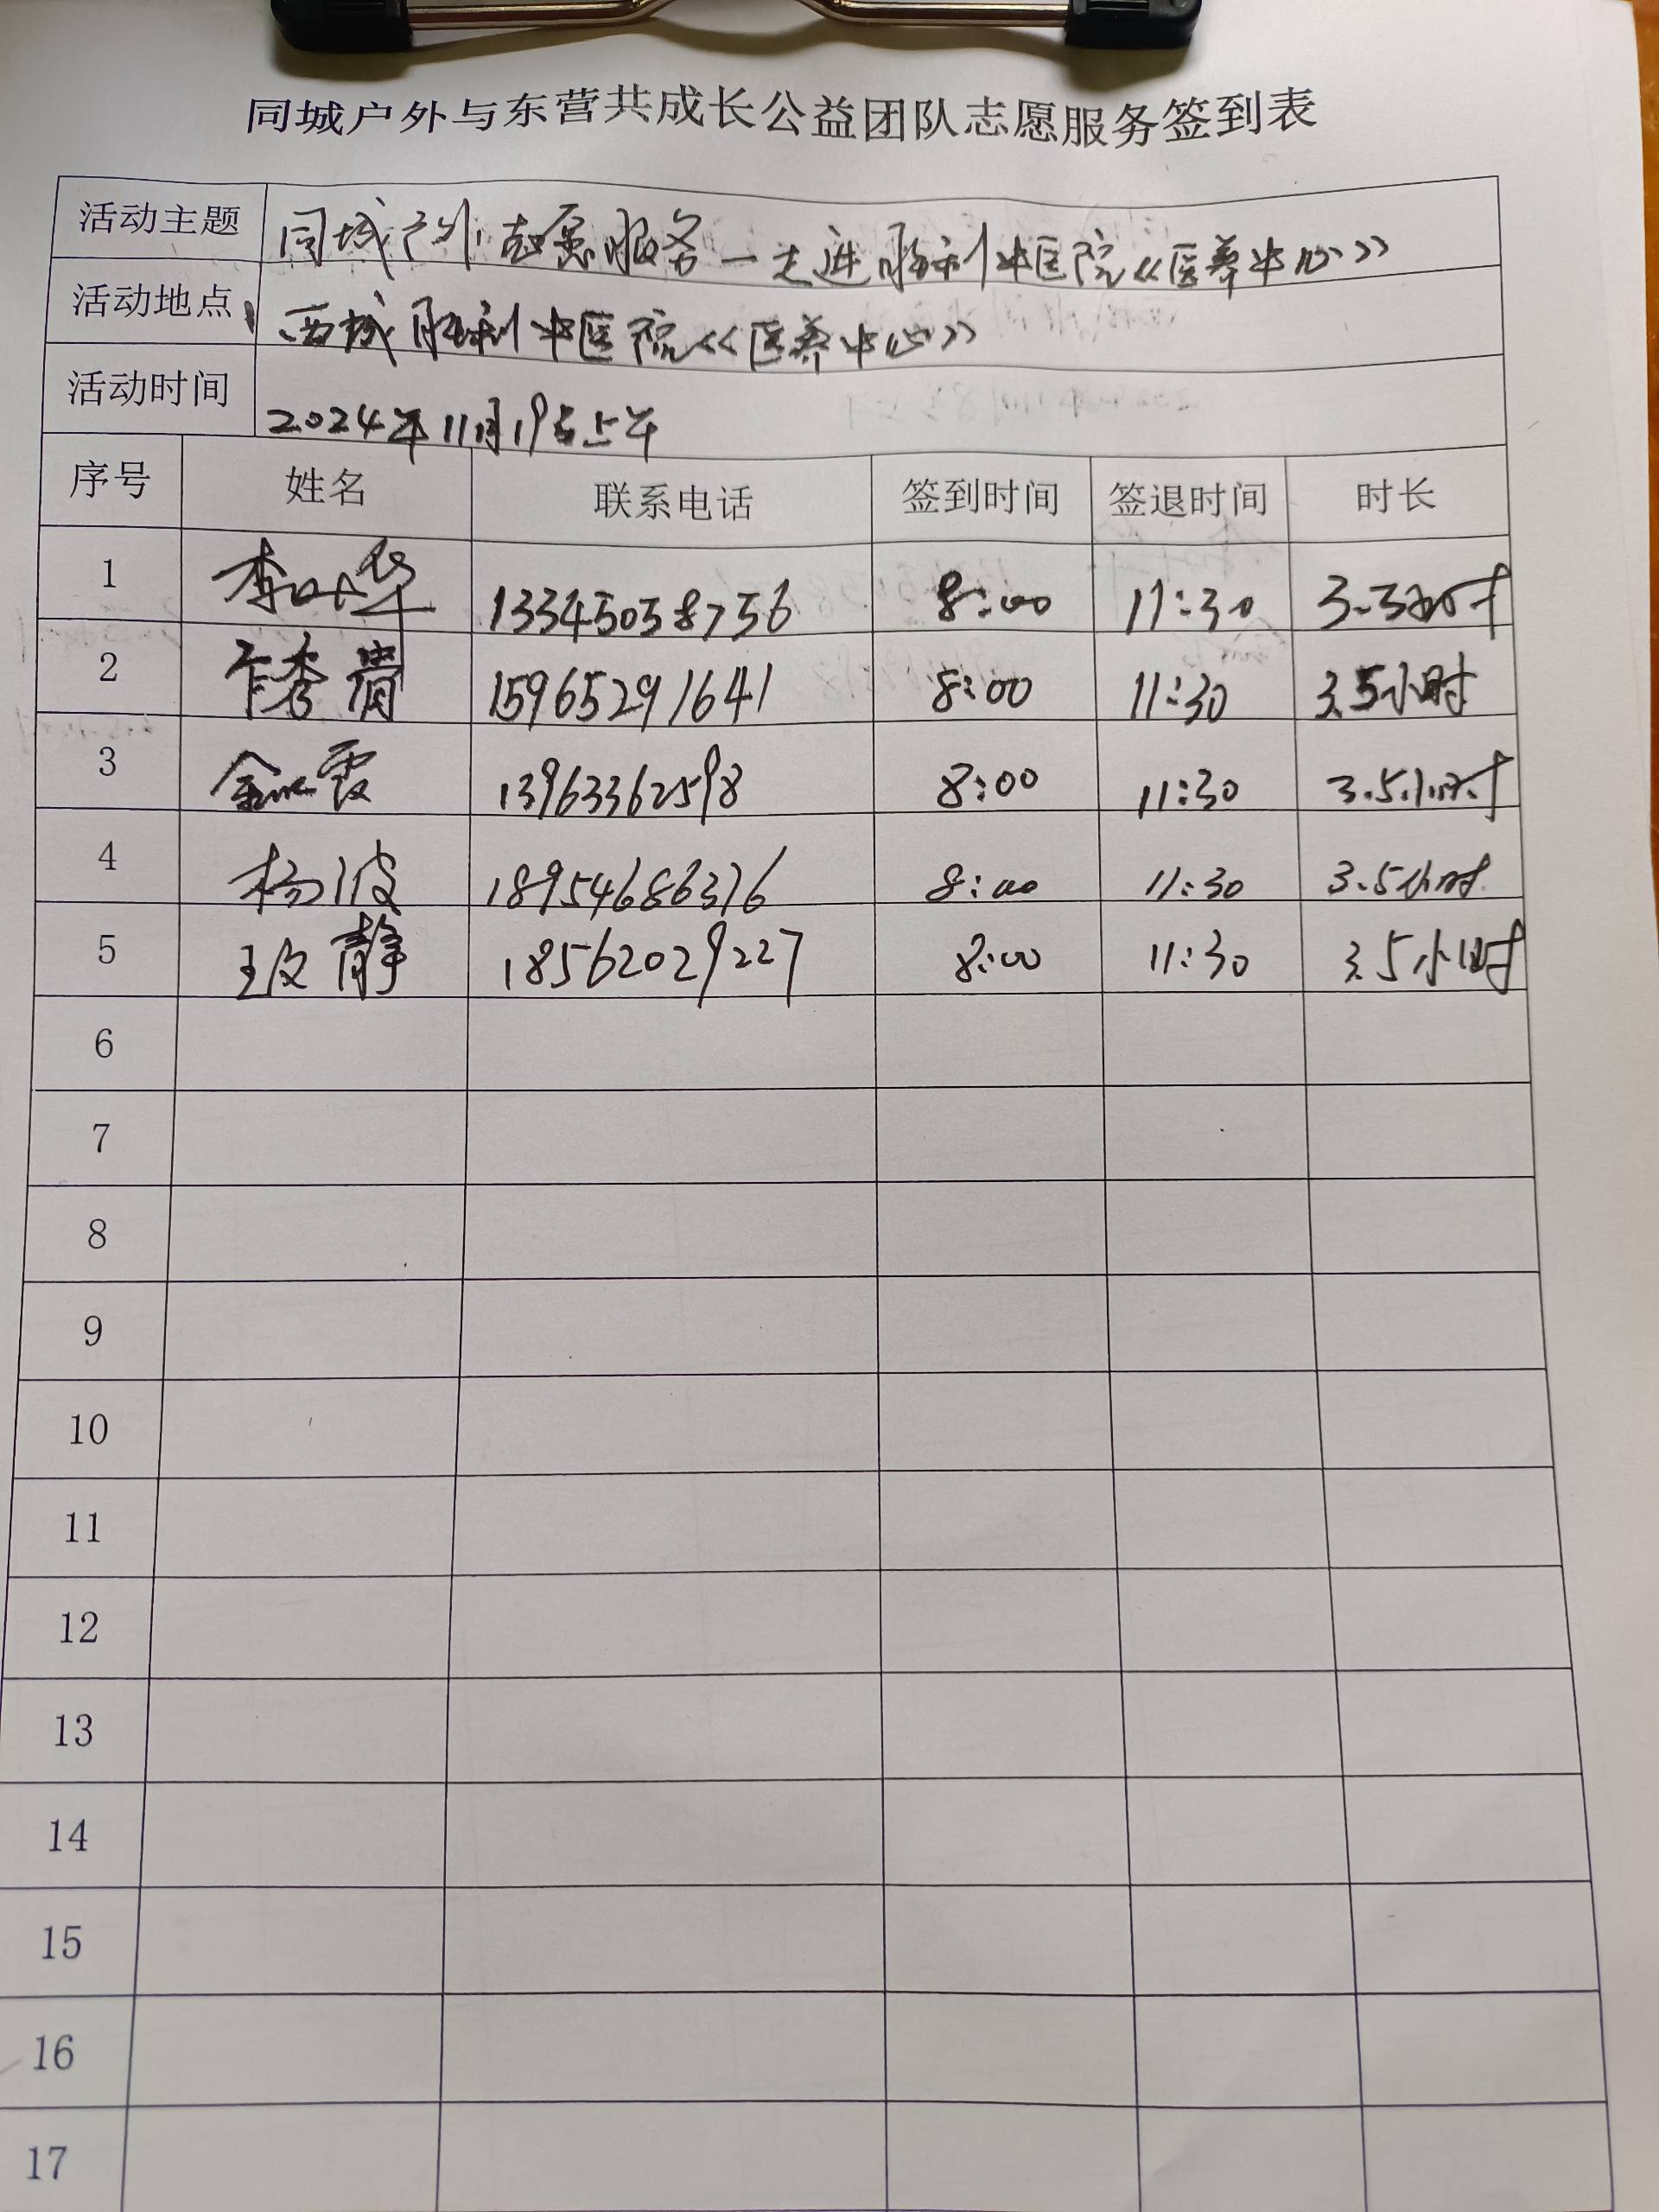 同城户外与东营共成长公益团队志愿服务签到表
活动主题 同城户外志愿服务—走进胜利中医院《医养中心》
活动地点 西城胜利中医院《医养中心》
活动时间 2024年11月19号上午
序号 姓名 联系电话 签到时间 签退时间 时长
1 李 华 13345058756 8:00 11:30 3.5小时
2 秀 15965291641 8:00 11:30 3.5小时
3 金 霞 13963362598 8:00 11:30 3.5小时
4 杨波 18954686376 8:00 11:30 3.5小时
5 王文静 18562029227 8:00 11:30 3.5小时
6
7
8
9
10
11
12
13
14
15
16
17